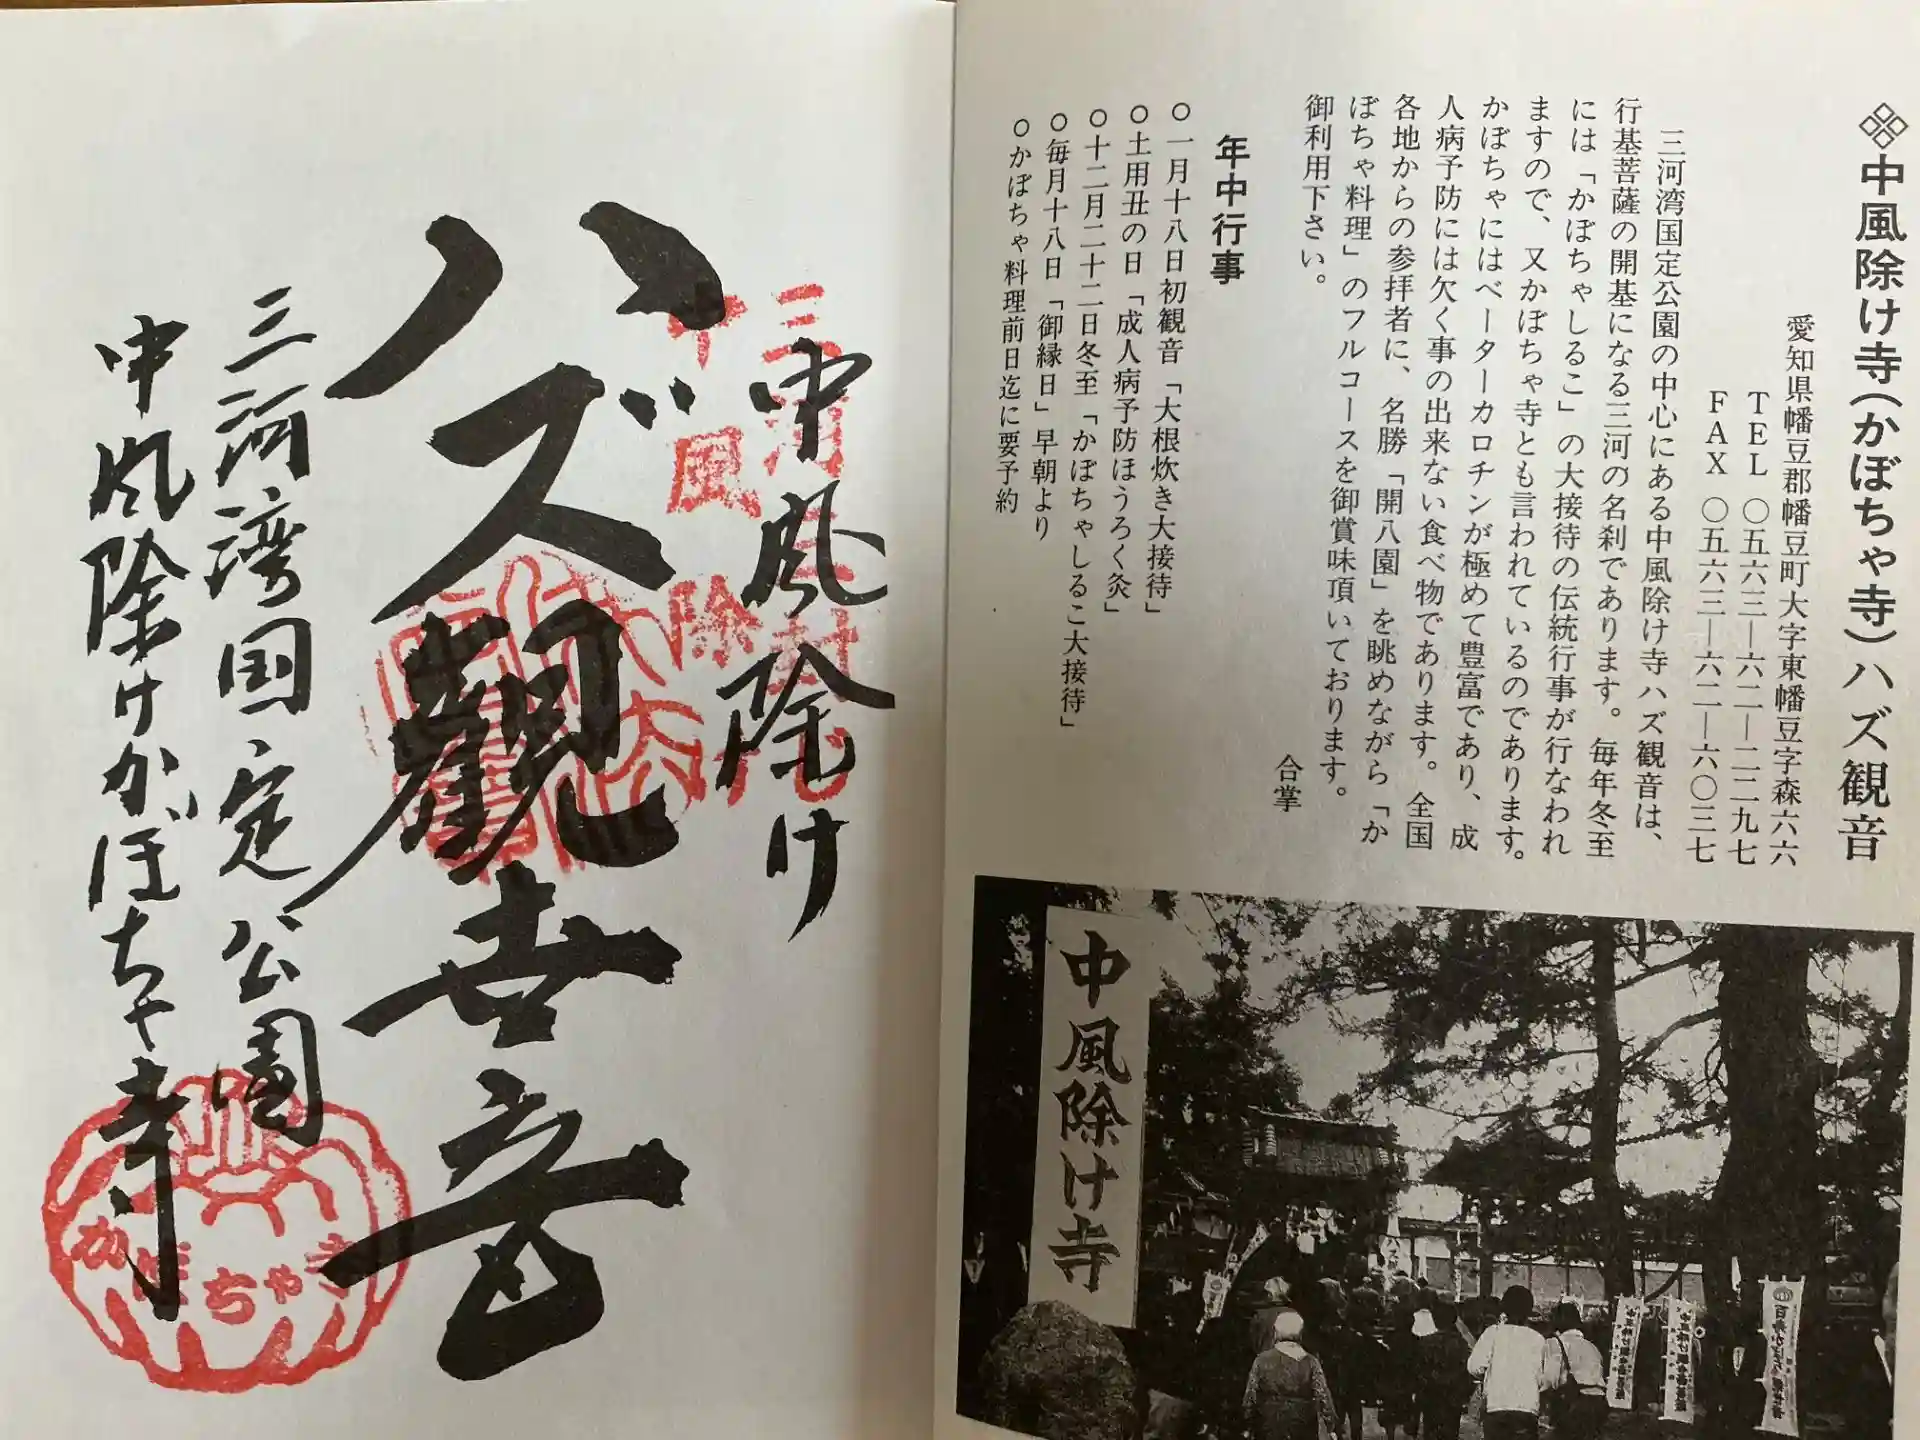 ◇中風除け寺(かぼちゃ寺)ハズ観音
愛知県幡豆郡幡豆町大字東幡豆字森六六
TEL 〇五六三―六二―二二九七
FAX 〇五六三―六二―六〇三七
三河湾国定公園の中心にある中風除け寺ハズ観音は、
行基菩薩の開基になる三河の名刹であります。毎年冬至
には「かぼちゃしるこ」の大接待の伝統行事が行なわれ
ますので、又かぼちゃ寺とも言われているのであります。
かぼちゃにはベーターカロチンが極めて豊富であり、成
人病予防には欠く事の出来ない食べ物であります。全国
各地からの参拝者に、名勝「開八園」を眺めながら「か
ぼちゃ料理」のフルコースを御賞味頂いております。
御利用下さい。
合掌
年中行事
○一月十八日初観音「大根炊き大接待」
○土用丑の日「成人病予防ほうろく灸」
○十二月二十二日冬至「かぼちゃしるこ大接待」
○毎月十八日「御縁日」早朝より
○かぼちゃ料理前日迄に要予約
中風除け寺
中風除け
ハズ観世音
三河湾国定公園
中風除けかぼちゃ寺
かぼちゃ寺